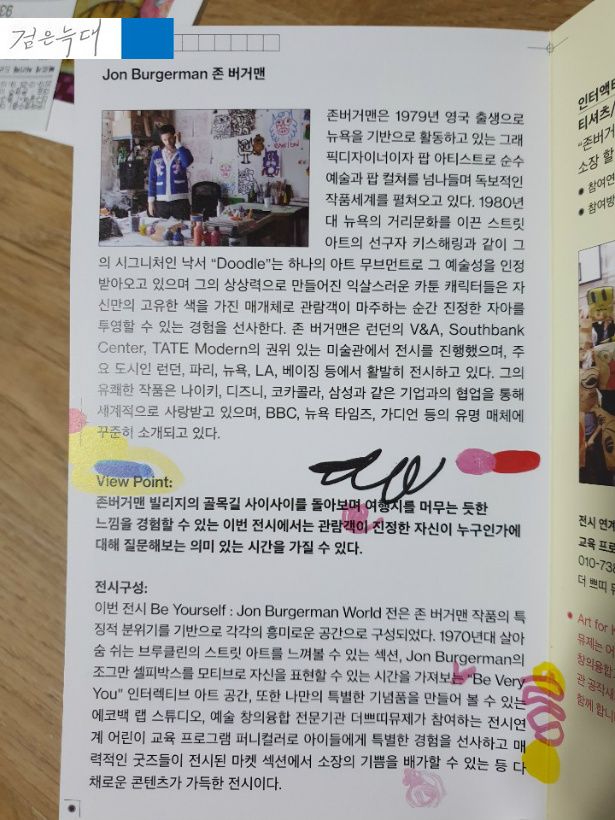 검은늑대
Jon Burgerman 존 버거맨
버거맨은 1979년 영국 출생으로
뉴욕을 기반으로 활동하고 있는 그래
픽디자이너이자 팝 아티스트로 순수
예술과 팝 컬쳐를 넘나들며 독보적인
작품세계를 펼쳐오고 있다. 1980년
대 뉴욕의 거리문화를 이끈 스트릿
아트의 선구자 키스해링과 같이 그
의 시그니처인 낙서 “Doodle”는 하나의 아트 무브먼트로 그 예술성을 인정
받아오고 있으며 그의 상상력으로 만들어진 익살스러운 카툰 캐릭터들은 자
신만의 고유한 색을 가진 매개체로 관람객이 마주하는 순간 진정한 자아를
투영할 수 있는 경험을 선사한다. 존 버거맨은 런던의 V&A, Southbank
Center, TATE Modern의 권위 있는 미술관에서 전시를 진행했으며, 주
요 도시인 런던, 파리, 뉴욕, LA, 베이징 등에서 활발히 전시하고 있다. 그의
유쾌한 작품은 나이키, 디즈니, 코카콜라, 삼성과 같은 기업과의 협업을 통해
세계적으로 사랑받고 있으며, BBC, 뉴욕 타임즈, 가디언 등의 유명 매체에
꾸준히 소개되고 있다.
View Point:
존버거맨 빌리지의 골목길 사이사이를 돌아보며 여행지를 머무는 듯한
느낌을 경험할 수 있는 이번 전시에서는 관람객이 진정한 자신이 누구인가에
대해 질문해보는 의미 있는 시간을 가질 수 있다.
전시구성:
이번 전시 Be Yourself : Jon Burgerman World 전은 존 버거맨 작품의 특
징적 분위기를 기반으로 각각의 흥미로운 공간으로 구성되었다. 1970년대 살아
숨 쉬는 브루클린의 스트릿 아트를 느껴볼 수 있는 섹션, Jon Burgerman의
조그만 셀피박스를 모티브로 자신을 표현할 수 있는 시간을 가져보는 “Be Very
You” 인터렉티브 아트 공간, 또한 나만의 특별한 기념품을 만들어 볼 수 있는
에코백 랩 스튜디오, 예술 창의융합 전문기관 더쁘띠뮤제가 참여하는 전시연
계 어린이 교육 프로그램 퍼니컬러로 아이들에게 특별한 경험을 선사하고 매
력적인 굿즈들이 전시된 마켓 섹션에서 소장의 기쁨을 배가할 수 있는 등 다
채로운 콘텐츠가 가득한 전시이다.
티셔츠/
“존버거
소장 할
전시 연계
교육 프로
010-738
더 쁘띠 뮤
Art for K
뮤제는 어
창의융합
관 공작사
함께 합니